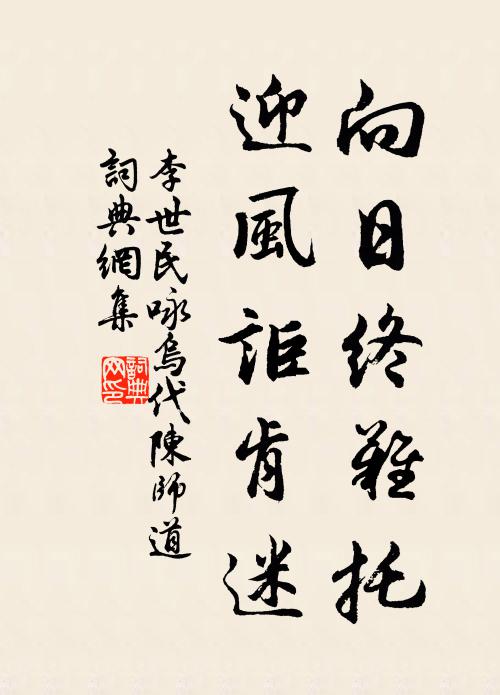 向日終難托
迎風詎肯迷
李世民咏烏代陳師道
詞典網集
詞典
网印